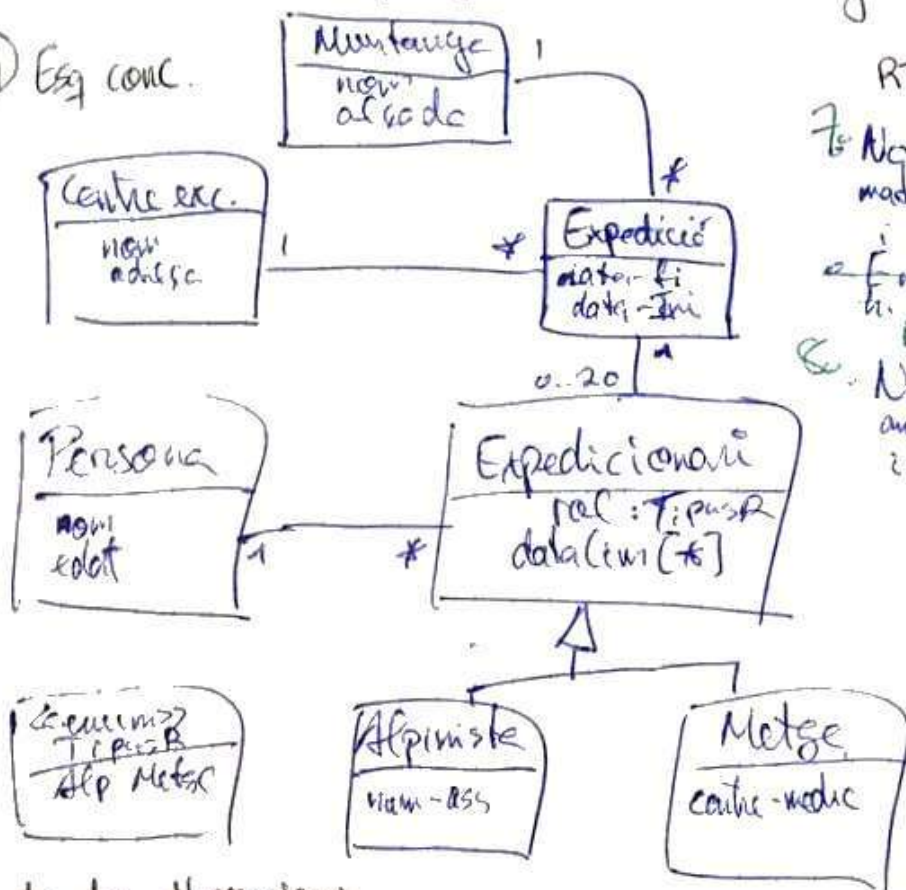 Esq conc.
Muntanya
nom
alçada
1
*
Centre exc.
nom
adreça
1
*
Expedició
data-fi
data-Ini
1
0..20
Persona
nom
edat
1
*
Expedicionari
rol : TipusR
dataCim [*]
<<enum>>
TipusR
Alp Metge
Alpinista
num-ass
Metge
centre-medic
7.
8.